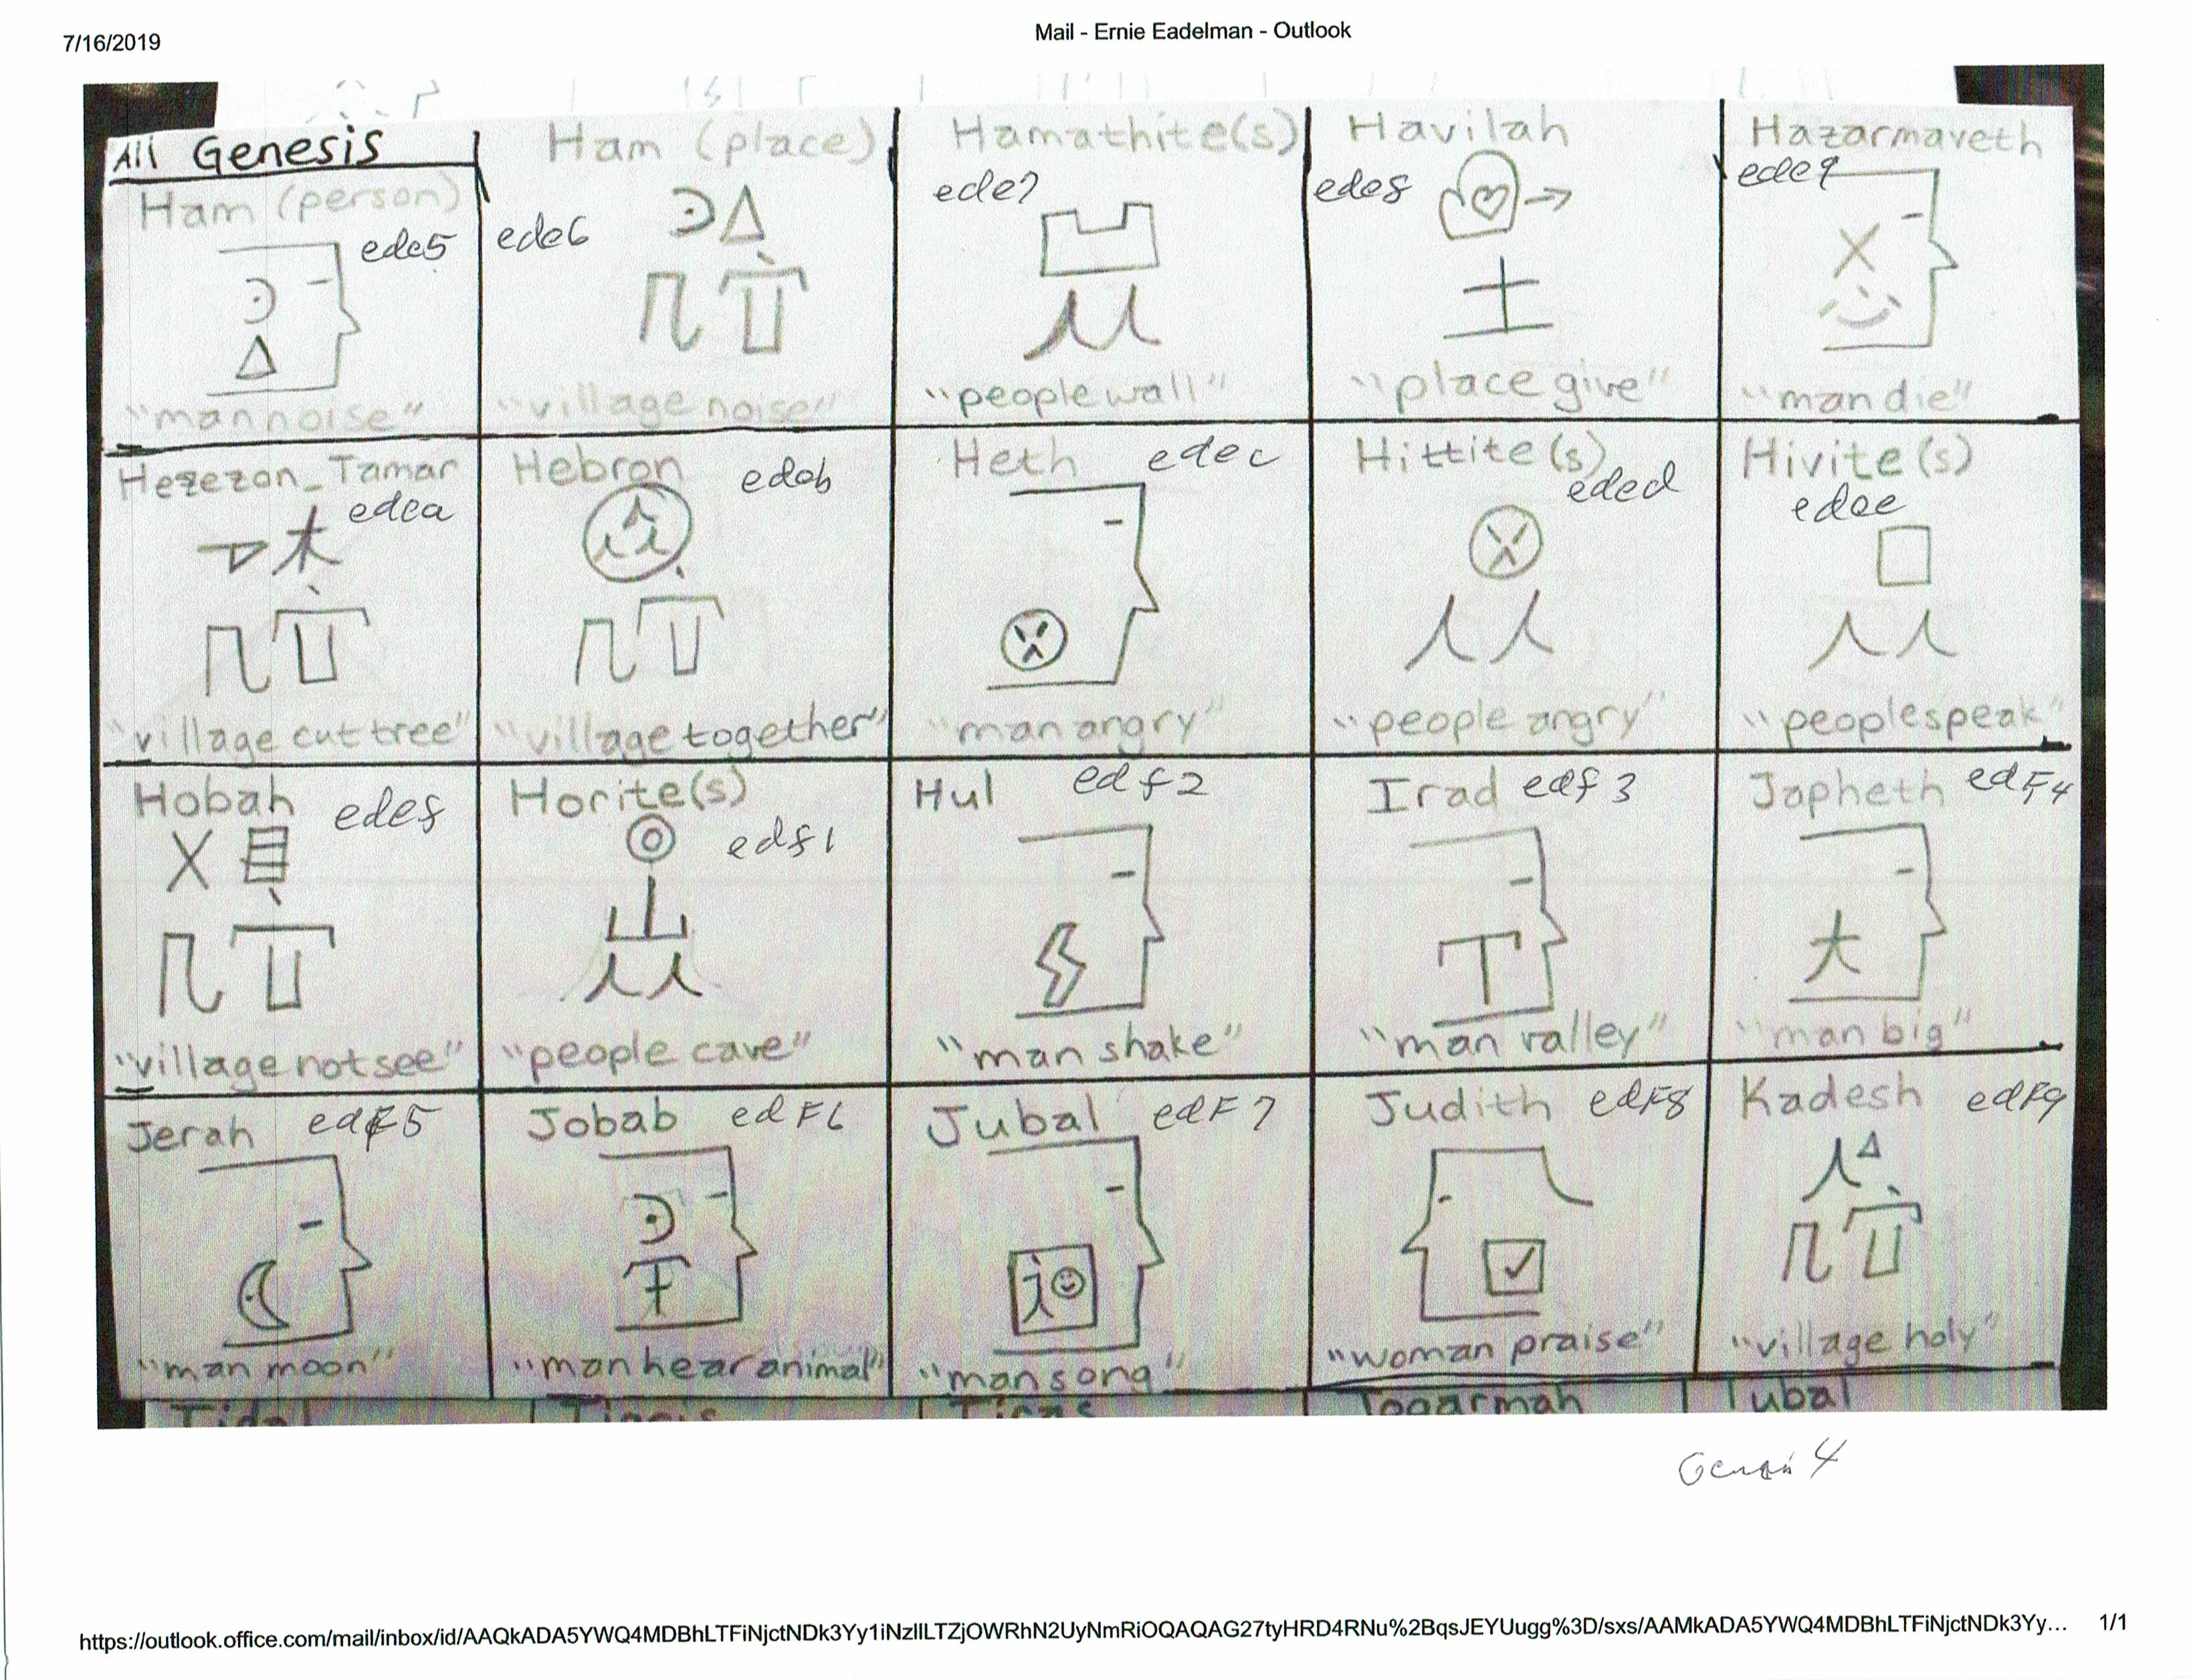 7/16/2019
Mail - Ernie Eadelman - Outlook
All Genesis
Ham (person)
ede5
"man noise"
Ham (place)
ede6
"village noise"
Hamathite(s)
ede7
"people wall"
Havilah
ede8
"place give"
Hazarmaveth
ede9
"man die"
Hezezon_Tamar
edea
"village cut tree"
Hebron
edeb
"village together"
Heth edec
"man angry"
Hittite(s)
eded
"people angry"
Hivite(s)
edee
"people speak"
Hobah edef
"village not see"
Horite(s)
edf1
"people cave"
Hul edf2
"man shake"
Irad edf3
"man valley"
Japheth edF4
"man big"
Jerah edF5
"man moon"
Jobab edF6
"man hear animal"
Jubal edF7
"man song"
Judith edF8
"woman praise"
Kadesh edF9
"village holy"
Togarmah Tubal
Genesis 4
https://outlook.office.com/mail/inbox/id/AAQkADA5YWQ4MDBhLTFiNjctNDk3Yy1iNzllLTZjOWRhN2UyNmRiOQAQAG27tyHRD4RNu%2BqsJEYUugg%3D/sxs/AAMkADA5YWQ4MDBhLTFiNjctNDk3Yy... 1/1